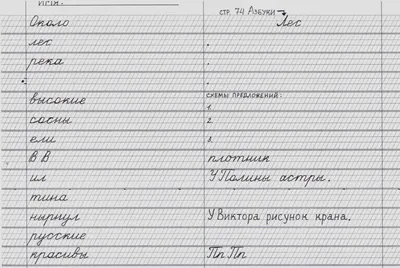 ИМЯ:
Около
лес
река
высокие
сосны
ели
В В
ил
тина
нырнул
русские
красивы
СТР. 74 АЗБУКИ
Лес
СХЕМЫ ПРЕДЛОЖЕНИЙ:
1.
2.
3.
плотник
У Полины астры.
У Виктора рисунок крана.
Пп Пп